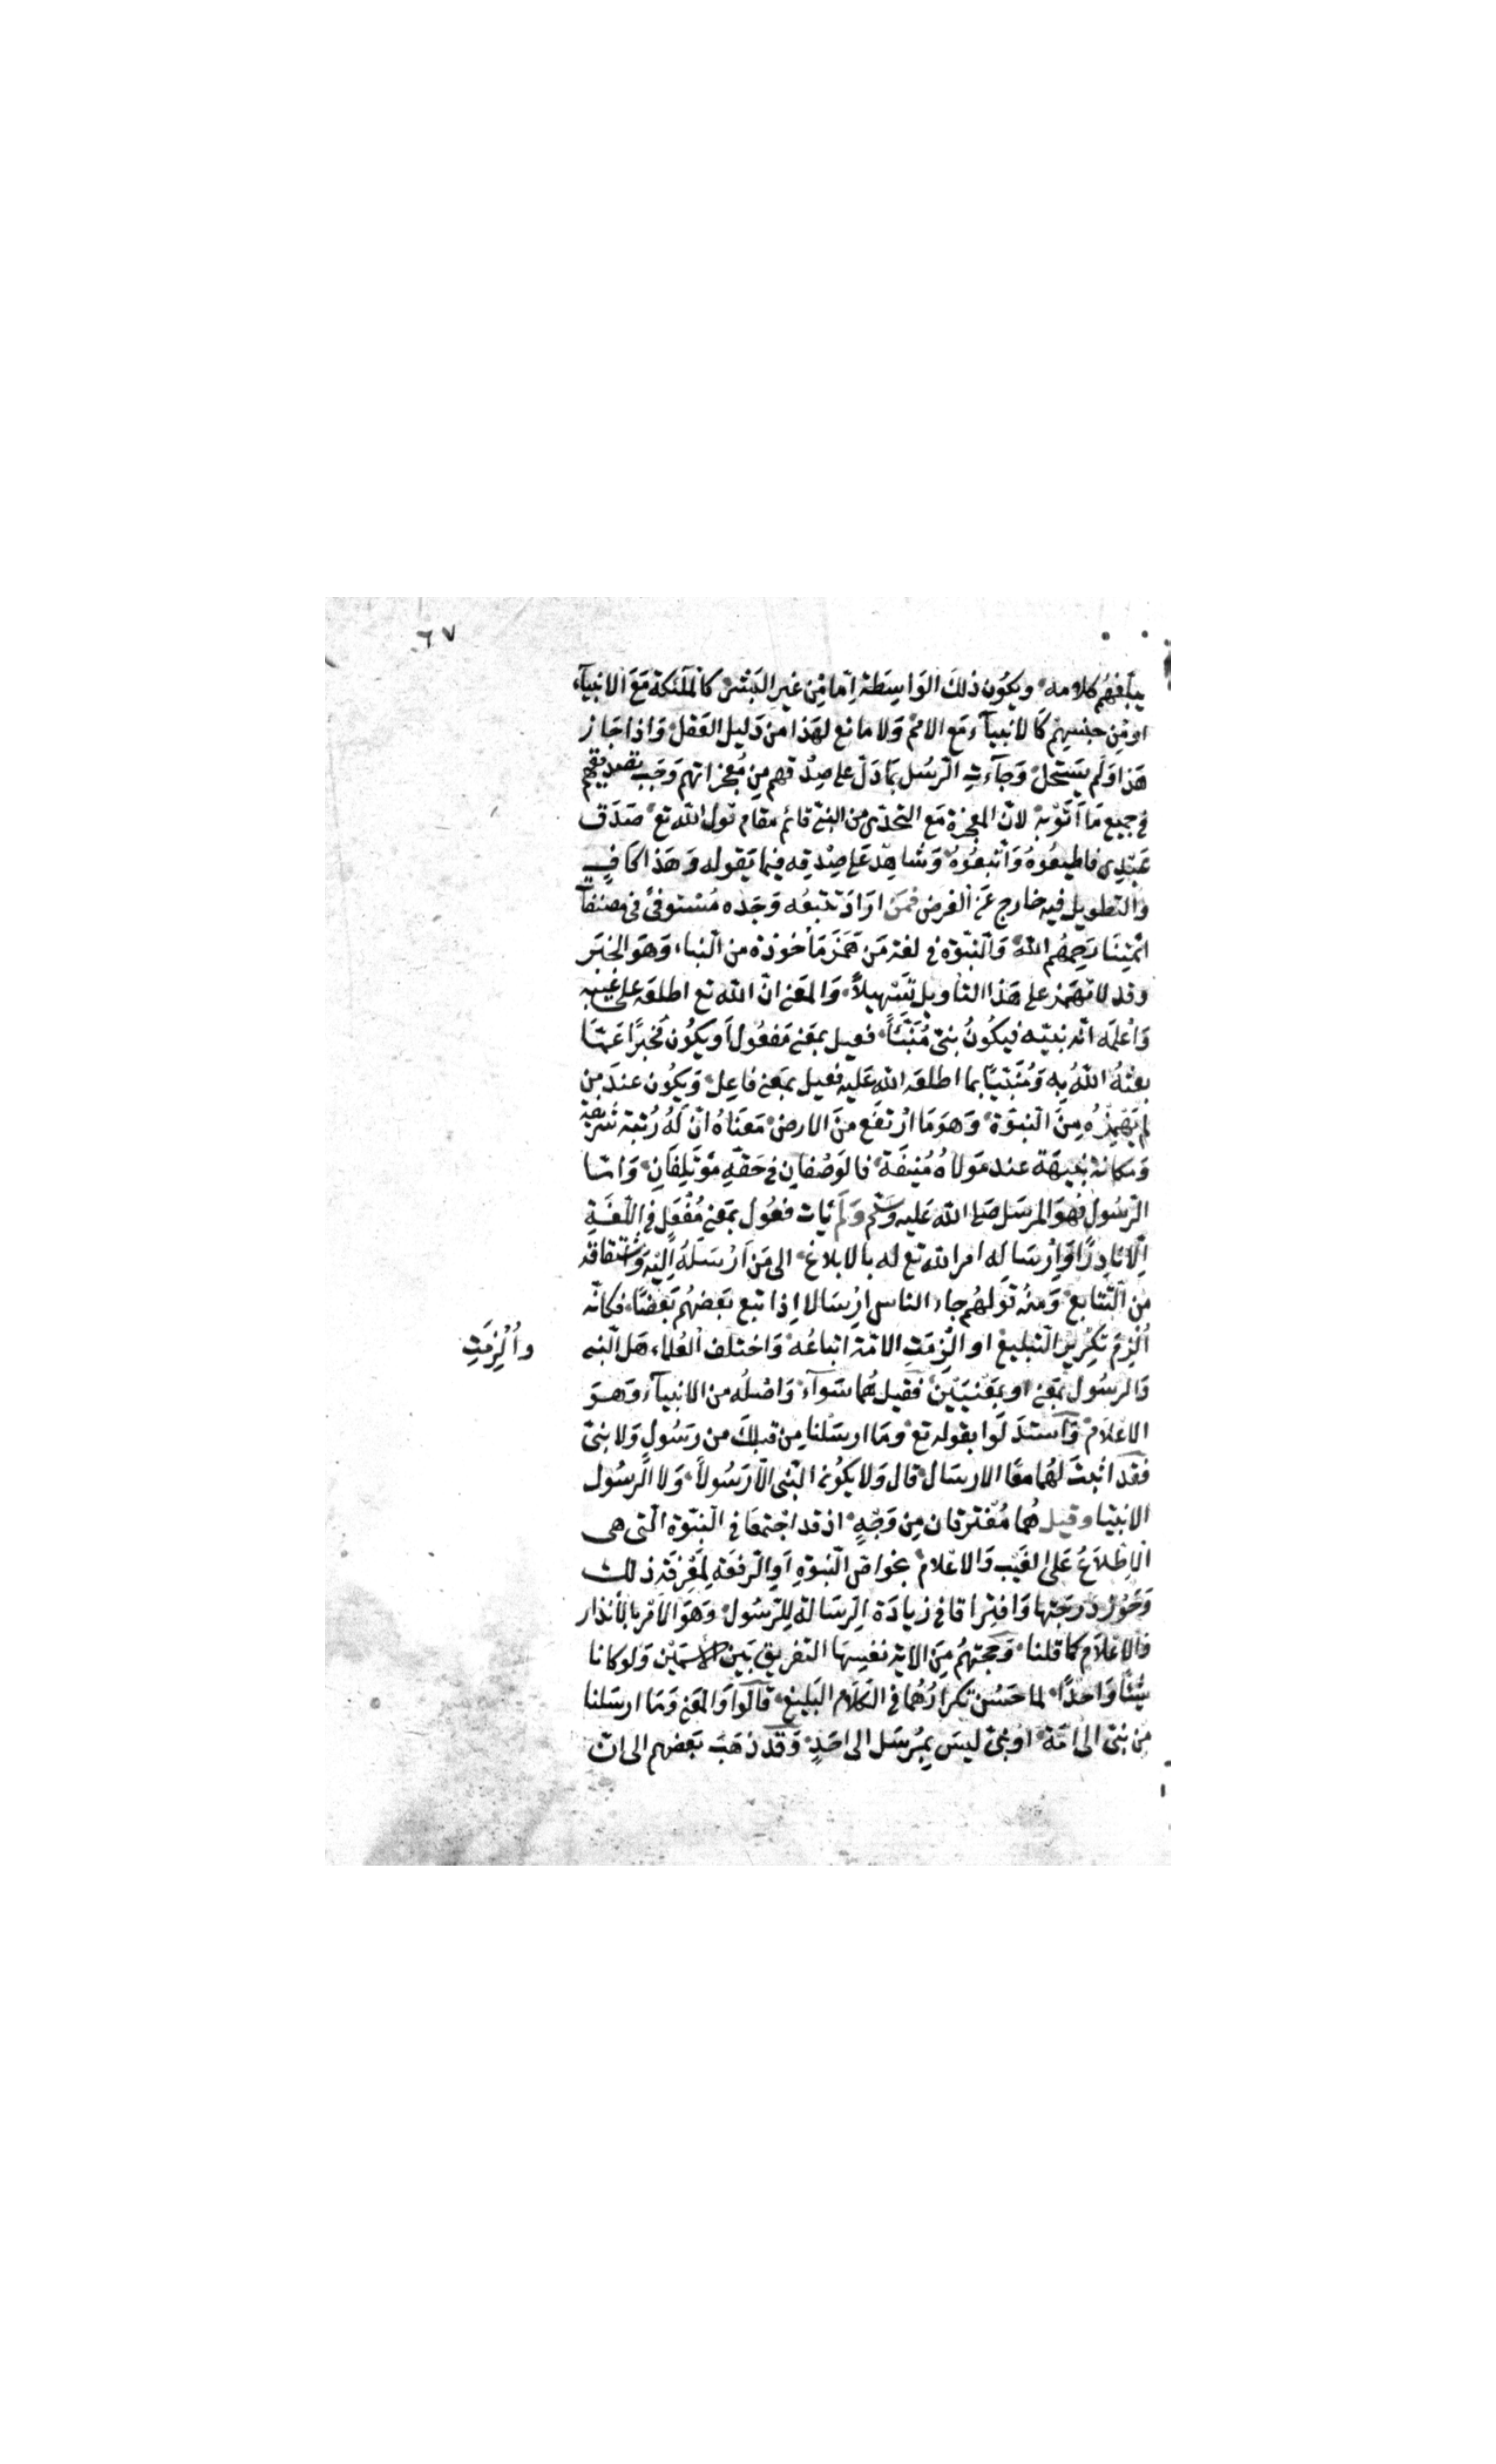 ٦٧
يبلغهم كلامه ويكون ذلك الواسطة اما من غير البشر كالملئكة مع الانبيآء
او من جنسهم كالانبيآء مع الامم ولا مانع لهذا من دليل العقل واذا جاز
هذا ولم يستحل وجآءت الرسل بما دل على صدقهم من معجزاتهم وجب تصديقهم
في جميع ما اتوا به لان المعجزة مع التحدي من النبي قائم مقام قول الله تع صدق
عبدي فاطيعوه واتبعوه وشاهد على صدقه فيما يقوله وهذا كاف
والتطويل فيه خارج عن الغرض فمن اراد تتبعه وجده مستوفى في مصنفات
ائمتنا رحمهم الله والنبوة في لغة من همز مأخوذة من النباء وهو الخبر
وقد لا تهمز على هذا التاويل تسهيلا والمعنى ان الله تع اطلعه على غيبه
واعلمه انه نبيه فيكون نبئ منبئا فعيل بمعنى مفعول او يكون مخبرا عما
بعثه الله به ومنبئا بما اطلعه الله عليه فعيل بمعنى فاعل ويكون عند من
لم يهمزه من النبوة وهو ما ارتفع من الارض معناه ان له رتبة شريفة
ومكانة نبيهة عند مولاه منيفة فالوصفان في حقه مؤتلفان واما
الرسول فهو المرسل صلى الله عليه وسلم ولم يأت فعول بمعنى مفعل في اللغة
الا نادرا وارساله امر الله تع له بالابلاغ الى من ارسله اليه واشتقاقه
من التتابع ومنه قولهم جاء الناس ارسالا اذا تبع بعضهم بعضا فكانه
الزم تكرير التبليغ او الزمت الامة اتباعه واختلف العلماء هل النبي
وألزمت
والرسول بمعنى او بمعنيين فقيل هما سوآء واصله من الانبيآء وهو
الاعلام واستدلوا بقوله تع وما ارسلنا من قبلك من رسول ولا نبي
فقد اثبت لهما معا الارسال قال ولا يكون النبي الا رسولا ولا الرسول
الا نبيا وقيل هما مفترقان من وجه اذ قد اجتمعا في النبوة التي هي
الاطلاع على الغيب والاعلام بخواص النبوة او الرفعة لمعرفة ذلك
وحوز درجتها وافترقا في زيادة الرسالة للرسول وهو الامر بالانذار
والاعلام كما قلنا وحجتهم من الاية نفسها التفريق بين الاسمين ولو كانا
شيئا واحدا لما حسن تكرارهما في الكلام البليغ قالوا والمعنى وما ارسلنا
من نبي الى امة او نبي ليس بمرسل الى احد وقد ذهب بعضهم الى ان